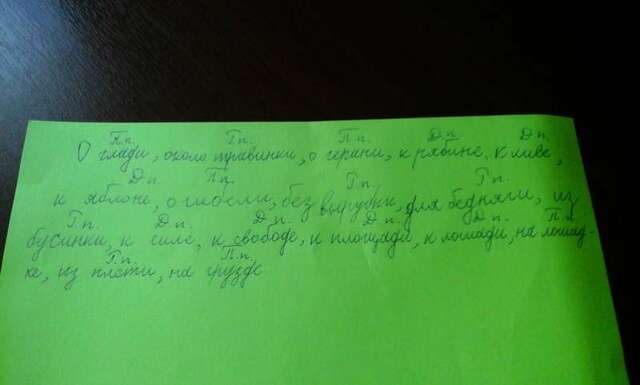 П.п. Г.п. П.п. Д.п. Д.п.
О глади, около травинки, о герани, к рябине, к иве,
Д.п П.п. Г.п. Г.п.
к яблоне, о гибели, без вырубки, для бедняги, из
Г.п. Д.п. Д.п. Д.п. Д.п. П.п
бусинки, к силе, к свободе, к площади, к лошади, на лошад-
Г.п. П.п.
ке, из плети, на груздк